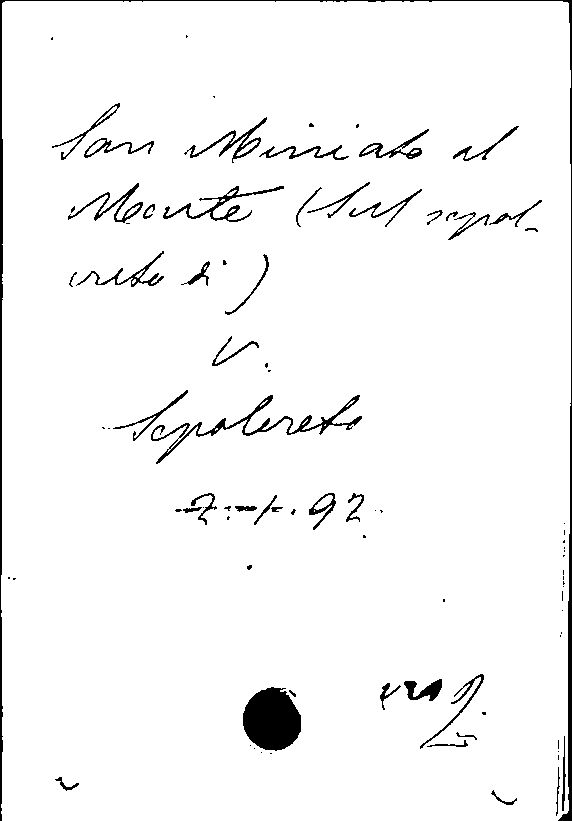 San Miniato al
Monte (Sul sepol-
creto di)
V.
Sepolcreto
2.-1.92